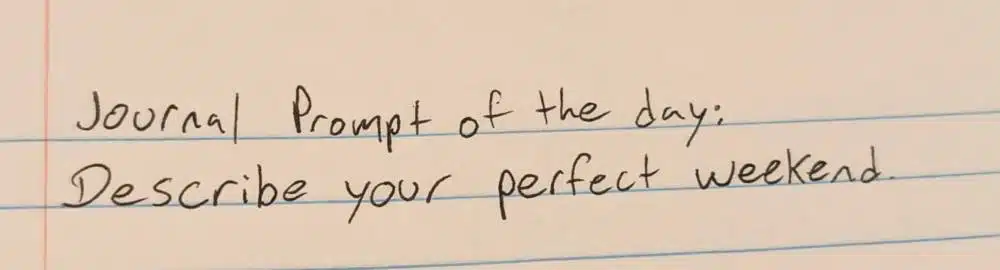 Journal Prompt of the day:
Describe your perfect weekend.